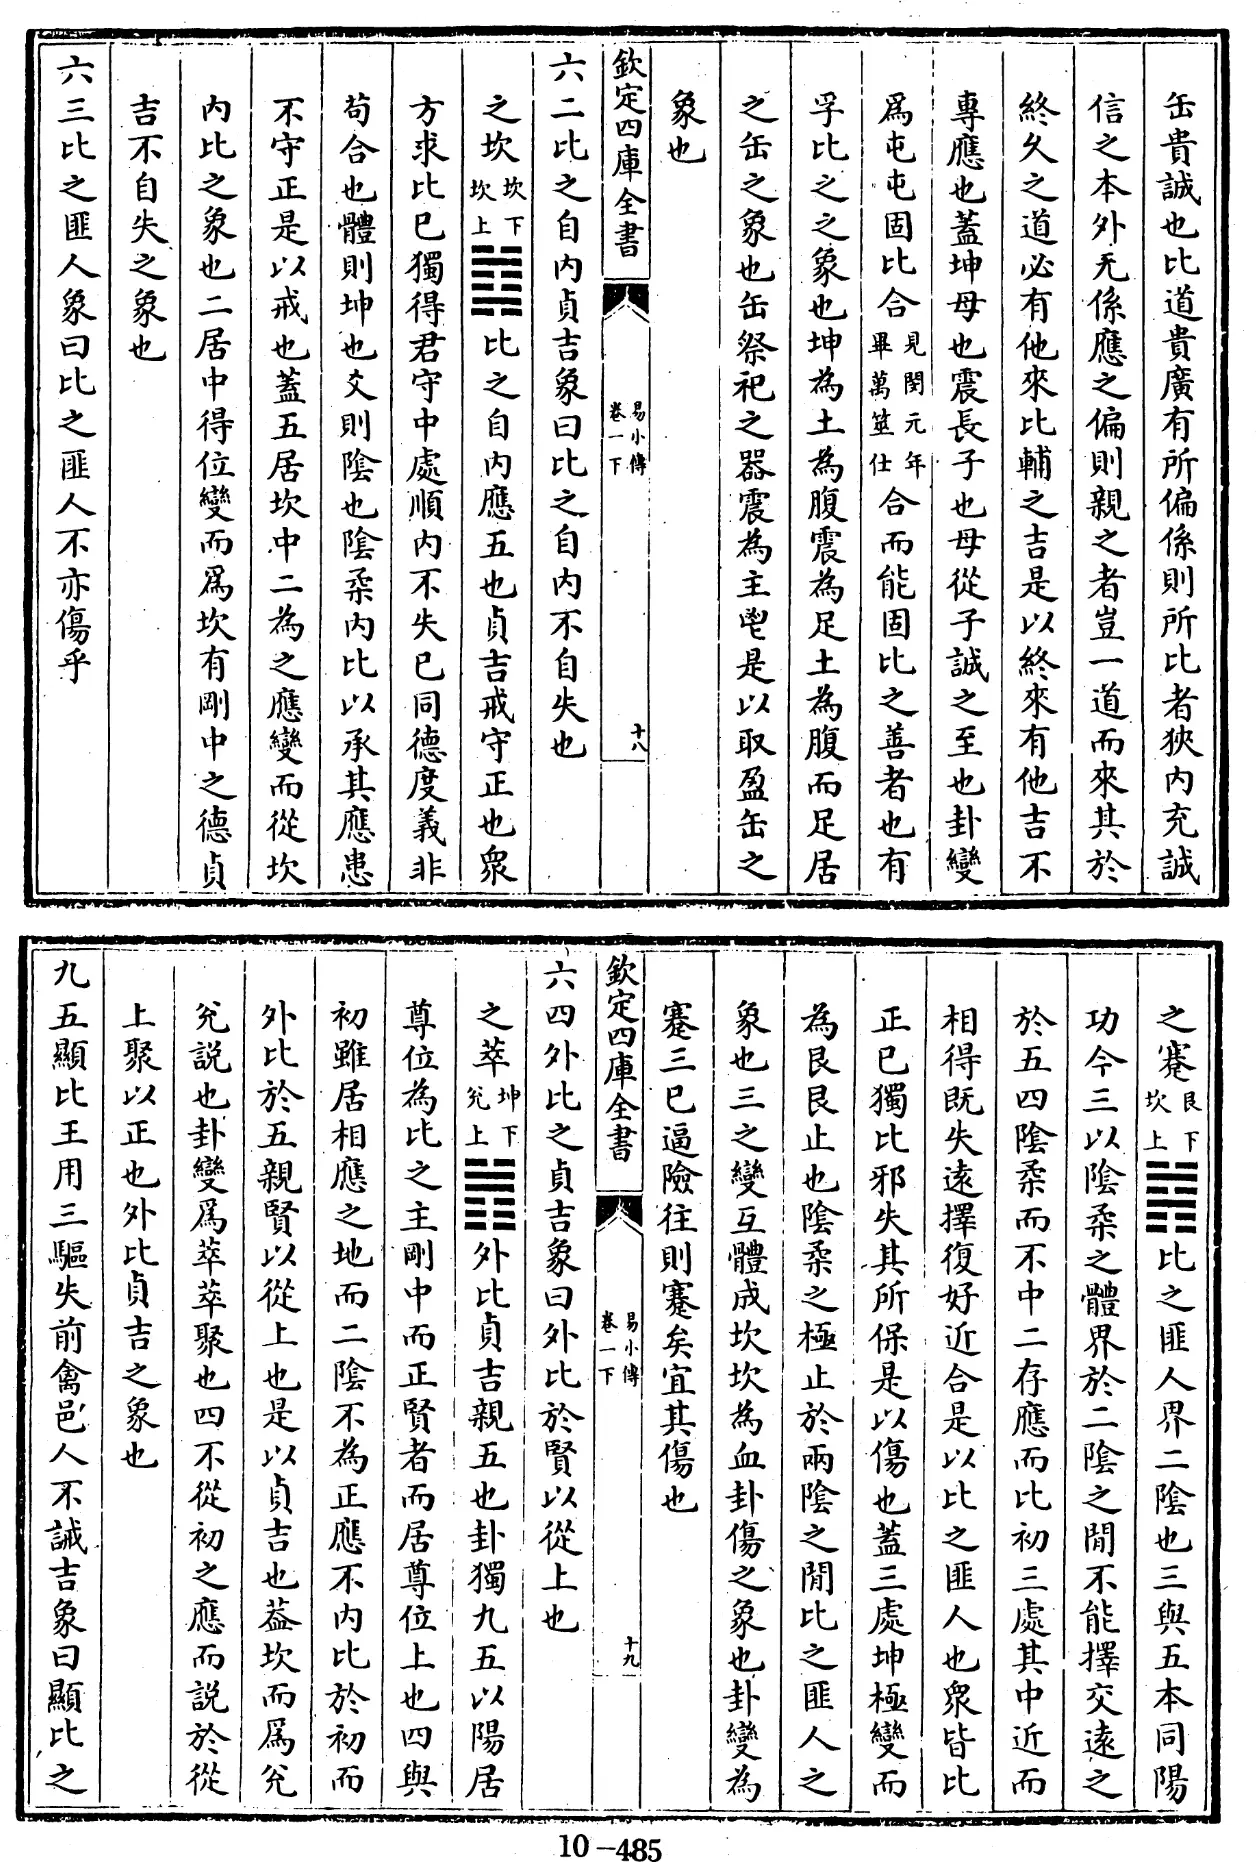 缶貴誠也比道貴廣有所偏係則所比者狹内充誠
信之本外无係應之偏則親之者豈一道而來其於
終久之道必有他來比輔之吉是以終來有他吉不
專應也蓋坤母也震長子也母從子誠之至也卦變
爲屯屯固比合見閔元年畢萬筮仕合而能固比之善者也有
孚比之之象也坤為土為腹震為足土為腹而足居
之缶之象也缶祭祀之器震為主鬯是以取盈缶之
象也
欽定四庫全書
易小傳
卷一下
十八
六二比之自内貞吉象曰比之自内不自失也
之坎坎下坎上䷜比之自内應五也貞吉戒守正也衆
方求比己獨得君守中處順内不失己同德度義非
苟合也體則坤也爻則陰也陰柔内比以承其應患
不守正是以戒也蓋五居坎中二為之應變而從坎
内比之象也二居中得位變而爲坎有剛中之德貞
吉不自失之象也
六三比之匪人象曰比之匪人不亦傷乎
之蹇艮下坎上䷦比之匪人界二陰也三與五本同陽
功今三以陰柔之體界於二陰之間不能擇交遠之
於五四陰柔而不中二存應而比初三處其中近而
相得既失遠擇復好近合是以比之匪人也衆皆比
正己獨比邪失其所保是以傷也蓋三處坤極變而
為艮艮止也陰柔之極止於兩陰之間比之匪人之
象也三之變互體成坎坎為血卦傷之象也卦變為
蹇三已逼險往則蹇矣宜其傷也
欽定四庫全書
易小傳
卷一下
十九
六四外比之貞吉象曰外比於賢以從上也
之萃坤下兊上䷬外比貞吉親五也卦獨九五以陽居
尊位為比之主剛中而正賢者而居尊位上也四與
初雖居相應之地而二陰不為正應不内比於初而
外比於五親賢以從上也是以貞吉也蓋坎而爲兊
兊説也卦變爲萃萃聚也四不從初之應而説於從
上聚以正也外比貞吉之象也
九五顯比王用三驅失前禽邑人不誡吉象曰顯比之
10-485